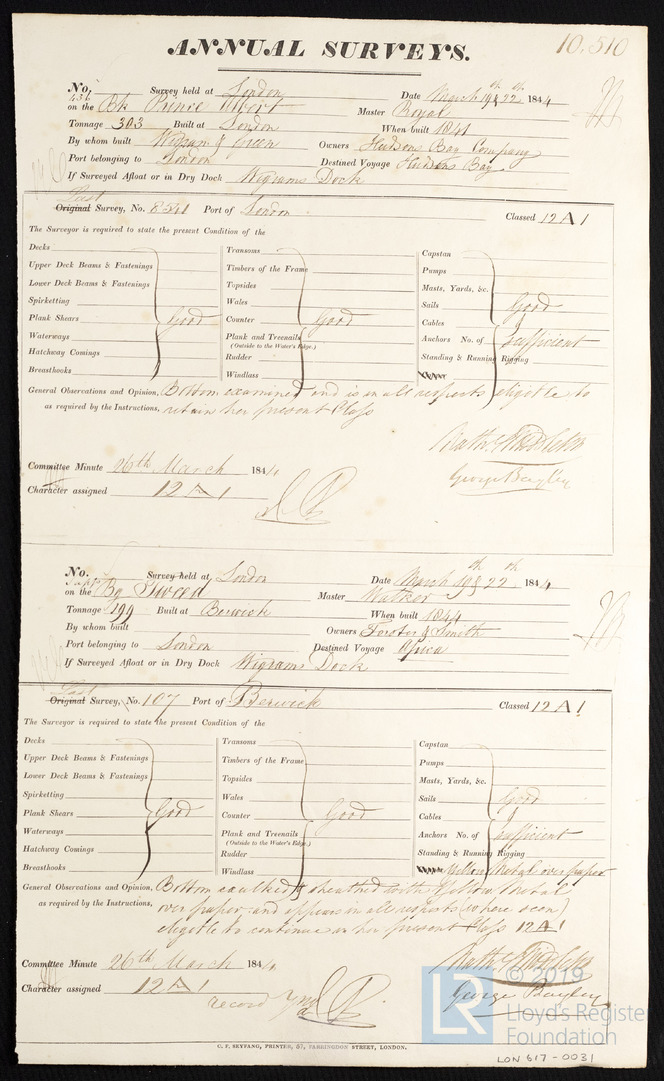 10.510
ANNUAL SURVEYS.
No. Survey held at London Date March 19 & 22 1844
on the Bk Prince Albert Master Royal
Tonnage 303 Built at London When built 1841
By whom built Wigram & Green Owners Hudsons Bay Company
Port belonging to London Destined Voyage Hudsons Bay
If Surveyed Afloat or in Dry Dock Wigrams Dock
Last
Original Survey, No. 8541 Port of London Classed 12 A 1
The Surveyor is required to state the present Condition of the
Decks
Upper Deck Beams & Fastenings
Lower Deck Beams & Fastenings
Spirketting
Plank Shears Good
Waterways
Hatchway Comings
Breasthooks
Transoms
Timbers of the Frame
Topsides
Wales
Counter Good
Plank and Treenails
(Outside to the Water's Edge.)
Rudder
Windlass
Capstan
Pumps
Masts, Yards, &c.
Sails Good
Cables
Anchors No. of sufficient
Standing & Running Rigging
General Observations and Opinion, Bottom examined and is in all respects eligible to
as required by the Instructions, retain her present Class
George Bayley
Committee Minute 26th March 1844
Character assigned 12 A 1
No. Survey held at London Date March 19 & 22 1844
on the Bg Tweed Master Walker
Tonnage 199 Built at Berwick When built 1844
By whom built Owners Forster & Smith
Port belonging to London Destined Voyage Africa
If Surveyed Afloat or in Dry Dock Wigrams Dock
Last
Original Survey, No. 107 Port of Berwick Classed 12 A 1
The Surveyor is required to state the present Condition of the
Decks
Upper Deck Beams & Fastenings
Lower Deck Beams & Fastenings
Spirketting
Plank Shears Good
Waterways
Hatchway Comings
Breasthooks
Transoms
Timbers of the Frame
Topsides
Wales
Counter Good
Plank and Treenails
(Outside to the Water's Edge.)
Rudder
Windlass
Capstan
Pumps
Masts, Yards, &c.
Sails Good
Cables
Anchors No. of sufficient
Standing & Running Rigging
Yellow Metal over paper
General Observations and Opinion, Bottom caulked & sheathed with Yellow Metal
as required by the Instructions, over paper and appears in all respects (where seen)
eligible to continue in her present Class 12 A 1
George Bayley
Committee Minute 26th March 1844
Character assigned 12 A 1
record
C. F. SEYFANG, PRINTER, 57, FARRINGDON STREET, LONDON.
LR © 2019
Lloyd's Register
Foundation
LON 617-0031